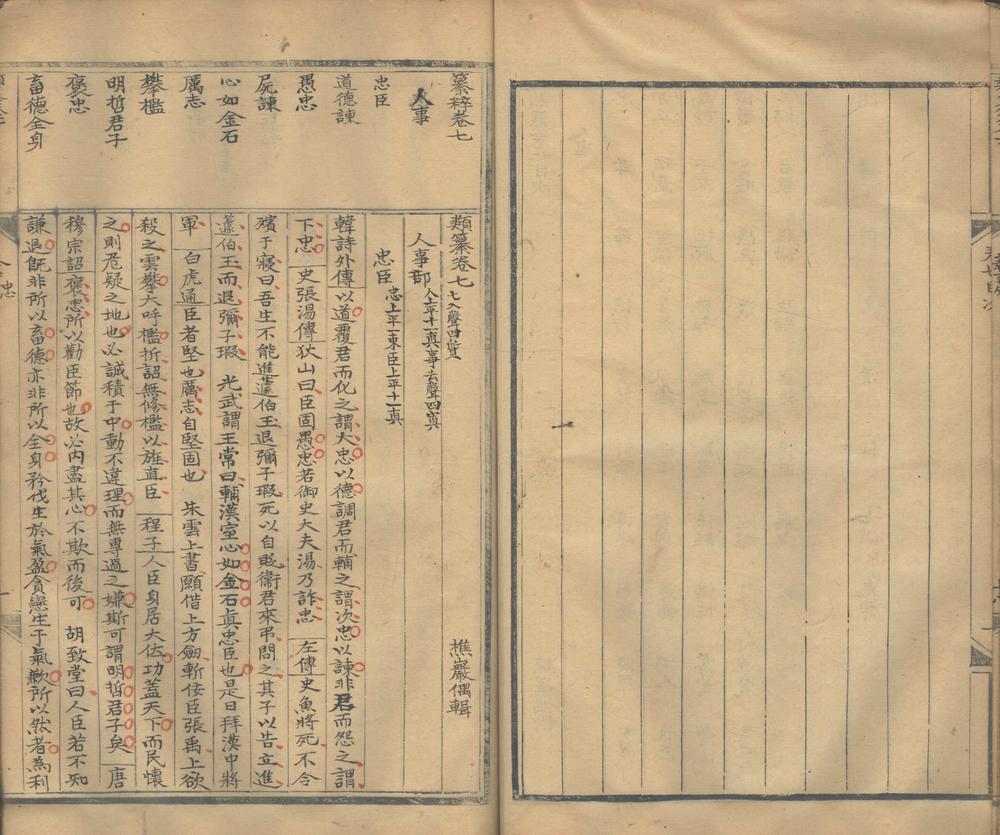 卷七目次
纂粹卷七
人事
忠臣
道德諫
愚忠
屍諫
心如金石
厲志
攀檻
明哲君子
褒忠
畜德全身
類纂卷七 七入聲四質 樵巖偶輯
人事部 人上平十一真事去聲四寘
忠臣 忠上平一東臣上平十一真
韓詩外傳以道覆君而化之謂大忠以德調君而輔之謂次忠以諫非君而怨之謂
下忠 史張湯傳狄山曰臣固愚忠若御史大夫湯乃詐忠 左傳史魚將死不令
殯于寢曰吾生不能進蘧伯玉退彌子瑕死以自貶衞君來弔問之其子以告立進
蘧伯玉而退彌子瑕 光武謂王常曰輔漢室心如金石眞忠臣也是日拜漢中將
軍 白虎通臣者堅也厲志自堅固也 朱雲上書願借上方劒斬佞臣張禹上欲
殺之雲攀大呼檻折詔無修檻以旌直臣 程子人臣身居大位功蓋天下而民懷
之則危疑之地也必誠積于中動不違理而無專過之嫌斯可謂明哲君子矣 唐
穆宗詔褒忠所以勸臣節也故必內盡其心不欺而後可 胡致堂曰人臣若不知
謙退旣非所以畜德亦非所以全身矜伐生於氣盈貪戀生于氣歉所以然者為利